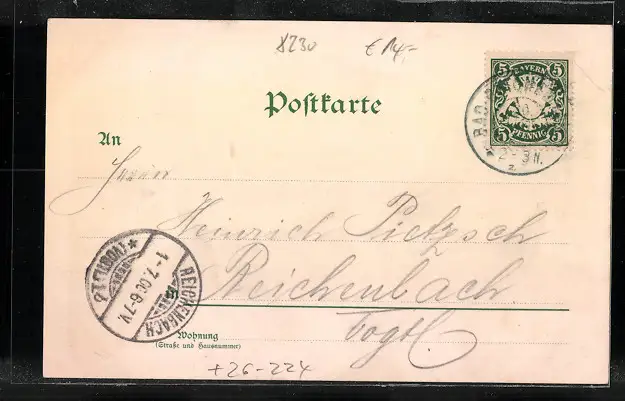 8230 € 14,-
Postkarte
5 BAYERN 5
5 PFENNIG 5
BAD
2-3N.
2
An
Herrn
Heinrich Pietzsch
Reichenbach
Vogtl
REICHENBACH
1-7.06.6-7V
Wohnung
(Straße und Hausnummer)
+26-224